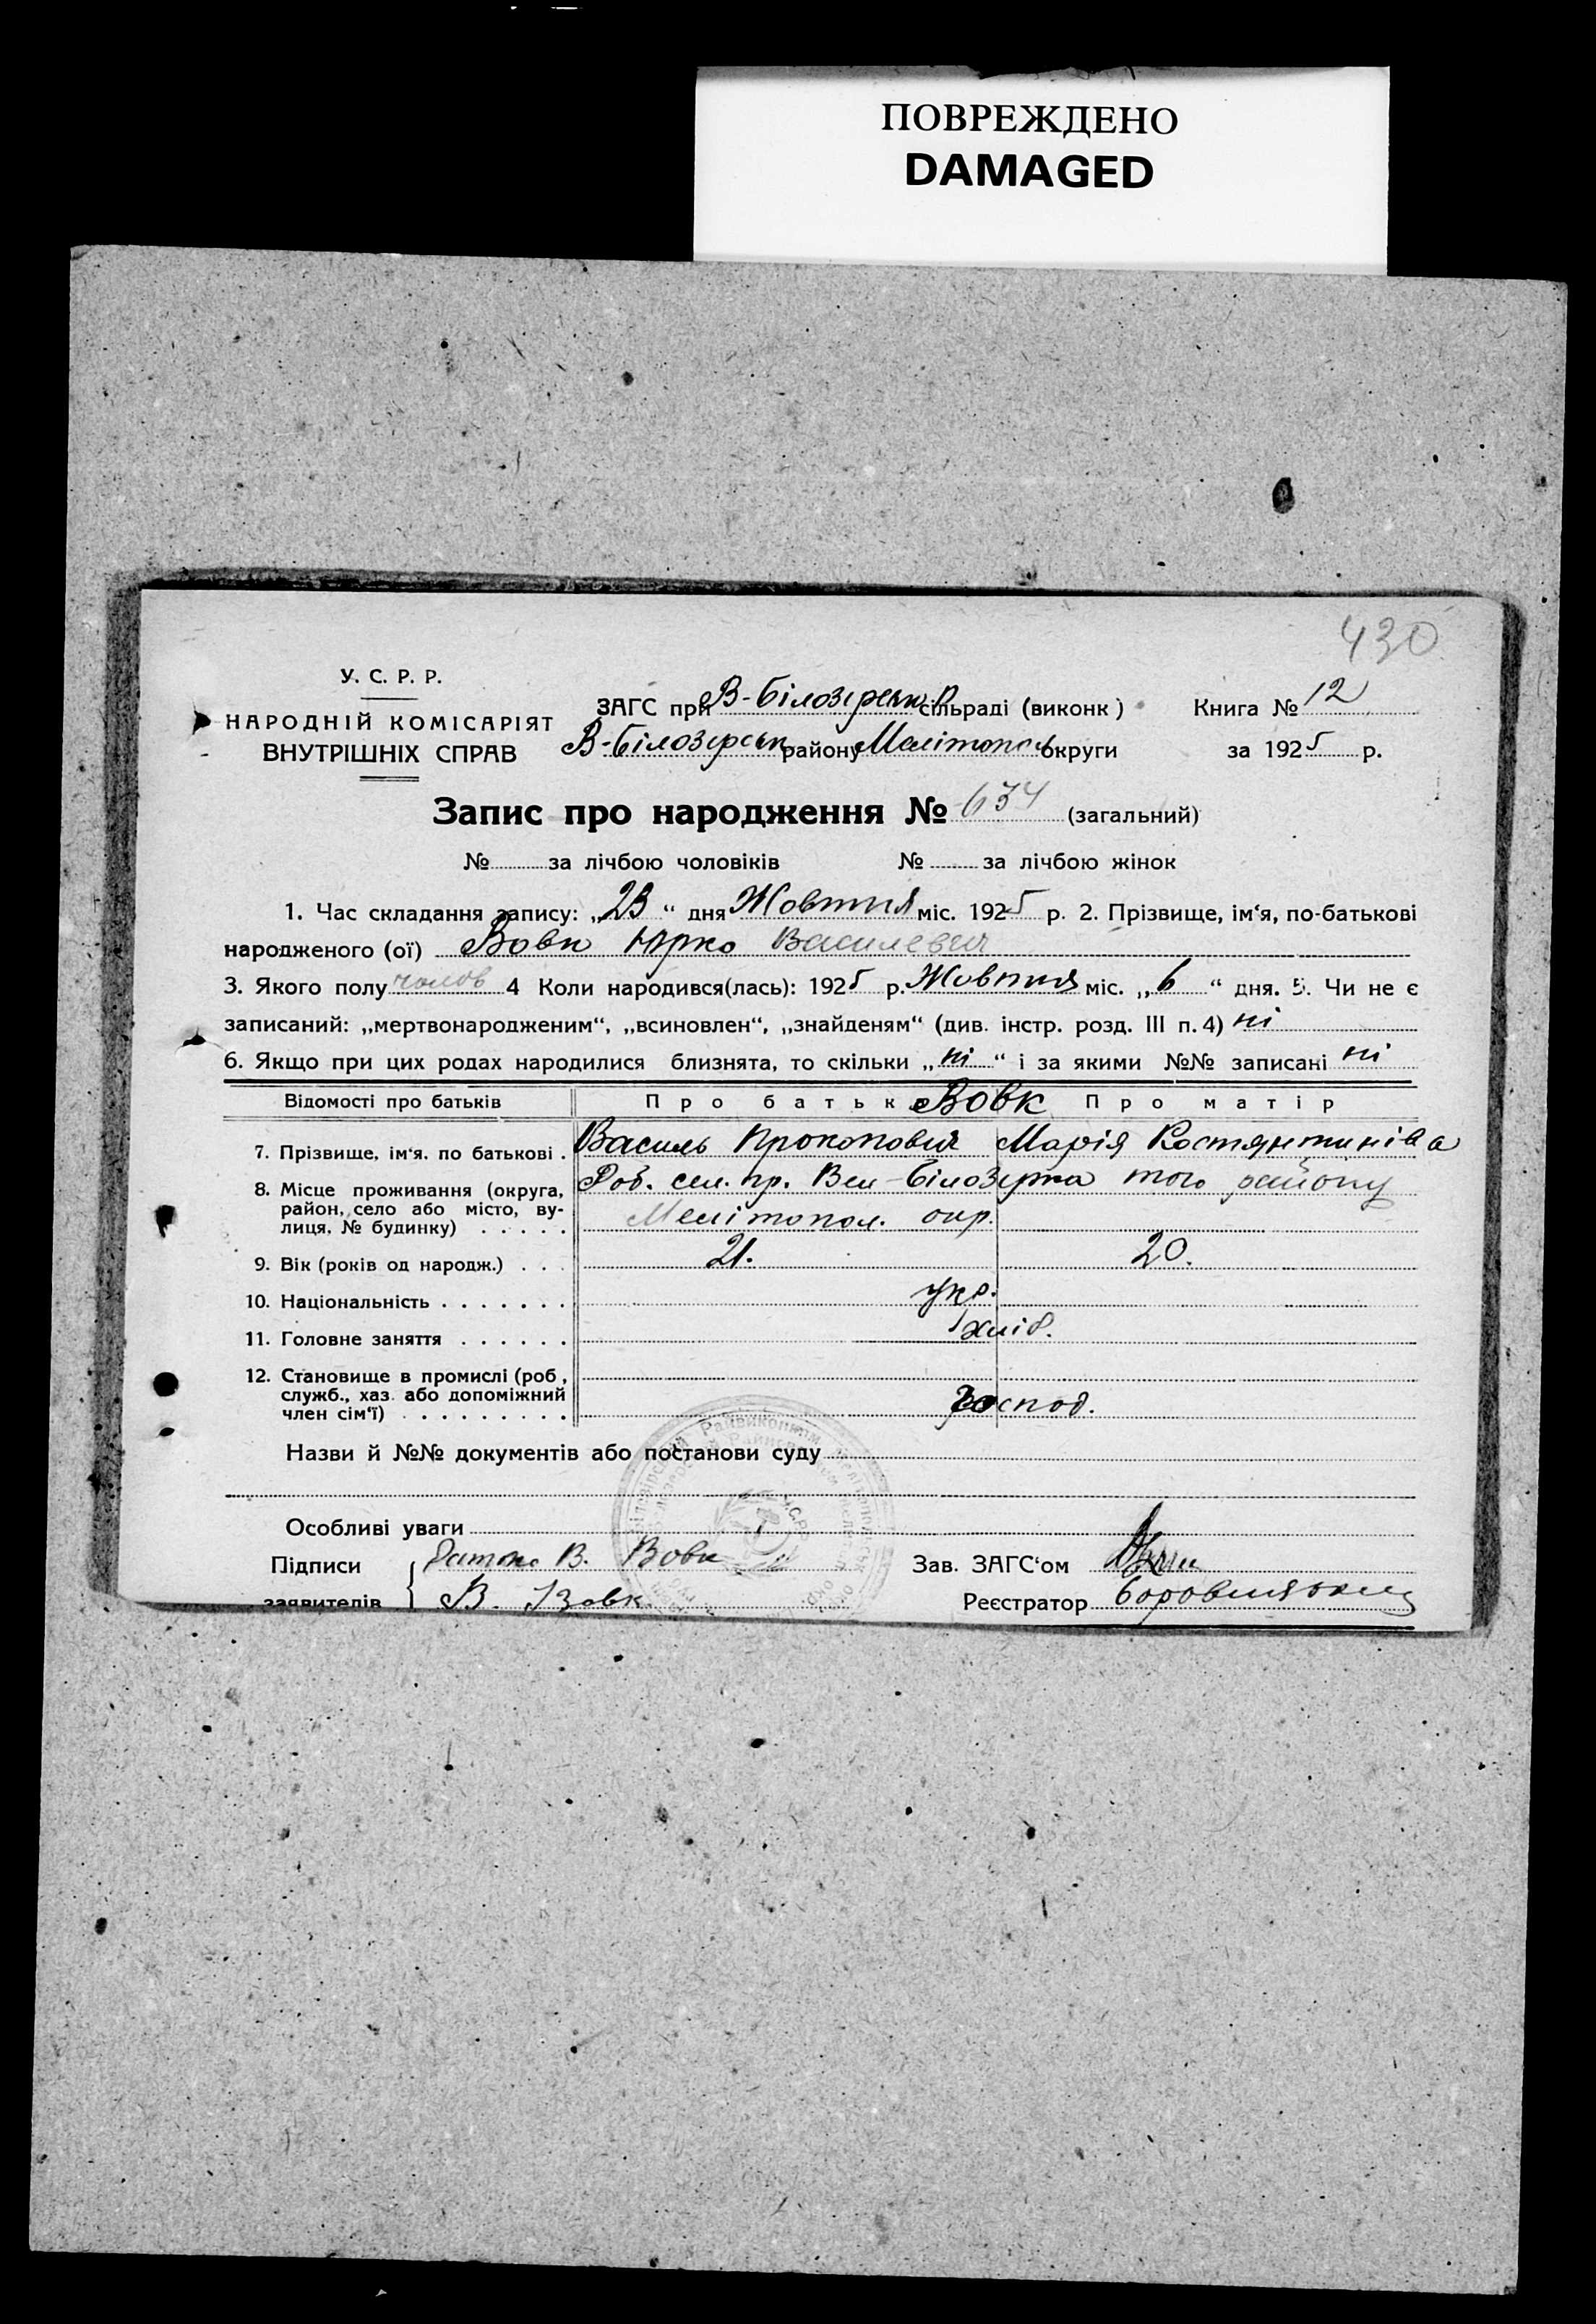 ПОВРЕЖДЕНО
DAMAGED
430
У. С. Р. Р.
НАРОДНІЙ КОМІСАРІЯТ
ВНУТРІШНІХ СПРАВ
ЗАГС при В-Білозерськ сільраді (виконк)
Книга № 12
В-Білозерськ району Мелітополь округи
за 1925 р.
Запис про народження № 634 (загальний)
№ за лічбою чоловіків № за лічбою жінок
1. Час складання запису: „23“ дня Жовтня міс. 1925 р. 2. Прізвище, ім'я, по-батькові
народженого (ої) Вовк Юрко Василевич
3. Якого полу чолов 4 Коли народився(лась): 1925 р. Жовтня міс. „6“ дня. 5. Чи не є
записаний: „мертвонародженим“, „всиновлен“, „знайденям“ (див. інстр. розд. III п. 4) ні
6. Якщо при цих родах народилися близнята, то скільки „ні“ і за якими №№ записані ні
Відомості про батьків Про батьк Вовк Про матір
7. Прізвище, ім'я. по батькові . Василь Прокопович Марія Костянтинівна
8. Місце проживання (округа, район, село або місто, вулиця, № будинку) . . . . . Роб. сел. пр. Вел-Білозерка того району
Мелітопол. окр.
9. Вік (років од народж.) . . . 21. 20.
10. Національність . . . . . . . укр.
11. Головне заняття . . . . . . хліб.
12. Становище в промислі (роб, служб., хаз. або допоміжний член сім'ї) . . . . . . . . . господ.
Назви й №№ документів або постанови суду
Особливі уваги
Підписи В. Вовк
заявителів В. Вовк
Зав. ЗАГС'ом
Реєстратор